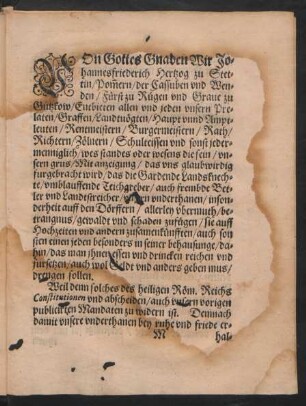 VOn Gottes Gnaden Wir Jo-
hannesfriederich Hertzog zu Stet-
tin / Pommern / der Cassuben vnd Wen-
den / Fürst zu Rügen vnd Graue zu
Gützkow / Entbieten allen vnd jeden vnsern Pre-
laten / Graffen / Landtuögten / Haupt vnnd Ampt-
leuten / Rentmeistern / Burgermeistern / Rath /
Richtern / Zölnern / Schulteissen vnd sonst jeder-
menniglich / wes standes oder wesens die sein / vn-
sern grus / Mit anzeigung / das vns glaubwirdig
furgebracht wird / das die Gardende Landsknech-
te / vmblauffende Teichgreber / auch frembde Bet-
ler vnd Landtstreicher / vnderthanen / inson-
derheit auff den Dörffern / allerley vbermuth / be-
trangnus / gewalt vnd schaden zufügen / sie auff
Hochzeiten vnd andern zusamenkünfften / auch son-
sten einen jeden besonders in seiner behausunge / da-
hin / das man jhnen essen vnd drincken reichen vnd
fürsetzen / auch wol Geldt vnd anders geben mus /
dringen sollen.
Weil denn solches des heiligen Röm. Reichs
Constitutionen vnd abscheiden / auch vnsern vorigen
publicirten Mandaten zu widern ist. Demnach
damit vnsere vnderthanen bey ruhe vnd friede er-
M hal-